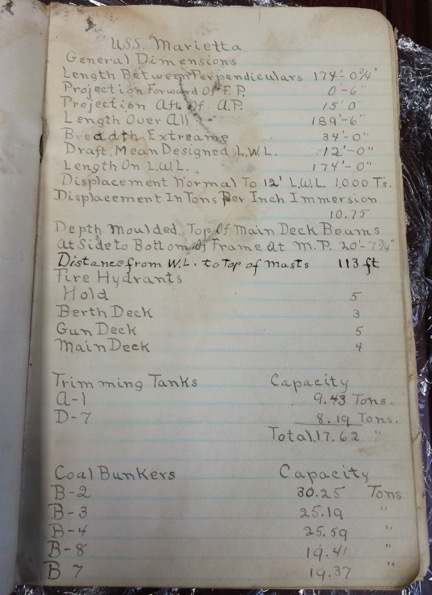 U.S.S. Marietta
General Dimensions
Length Between Perpendiculars 174'-0¾"
Projection Forward Of F.P. 0'-6"
Projection Aft Of A.P. 15'0"
Length Over All 189'-6"
Breadth Extreame 34'-0"
Draft, Mean Designed L.W.L. 12'-0"
Length On L.W.L. 174'-0"
Displacement Normal To 12' L.W.L 1,000 Ts.
Displacement In Tons Per Inch Immersion
10.75
Depth Moulded, Top Of Main Deck Beams
At Side to Bottom of Frame at M.P. 20'-7¾"
Distance from W.L. to Top of masts 113 ft
Fire Hydrants
Hold 5
Berth Deck 3
Gun Deck 5
Main Deck 4
Trimming Tanks Capacity
A-1 9.43 Tons.
D-7 8.19 Tons.
Total.17.62 "
Coal Bunkers Capacity
B-2 30.25 Tons
B-3 25.19 "
B-4 25.59 "
B-8 19.41 "
B 7 19.37 "